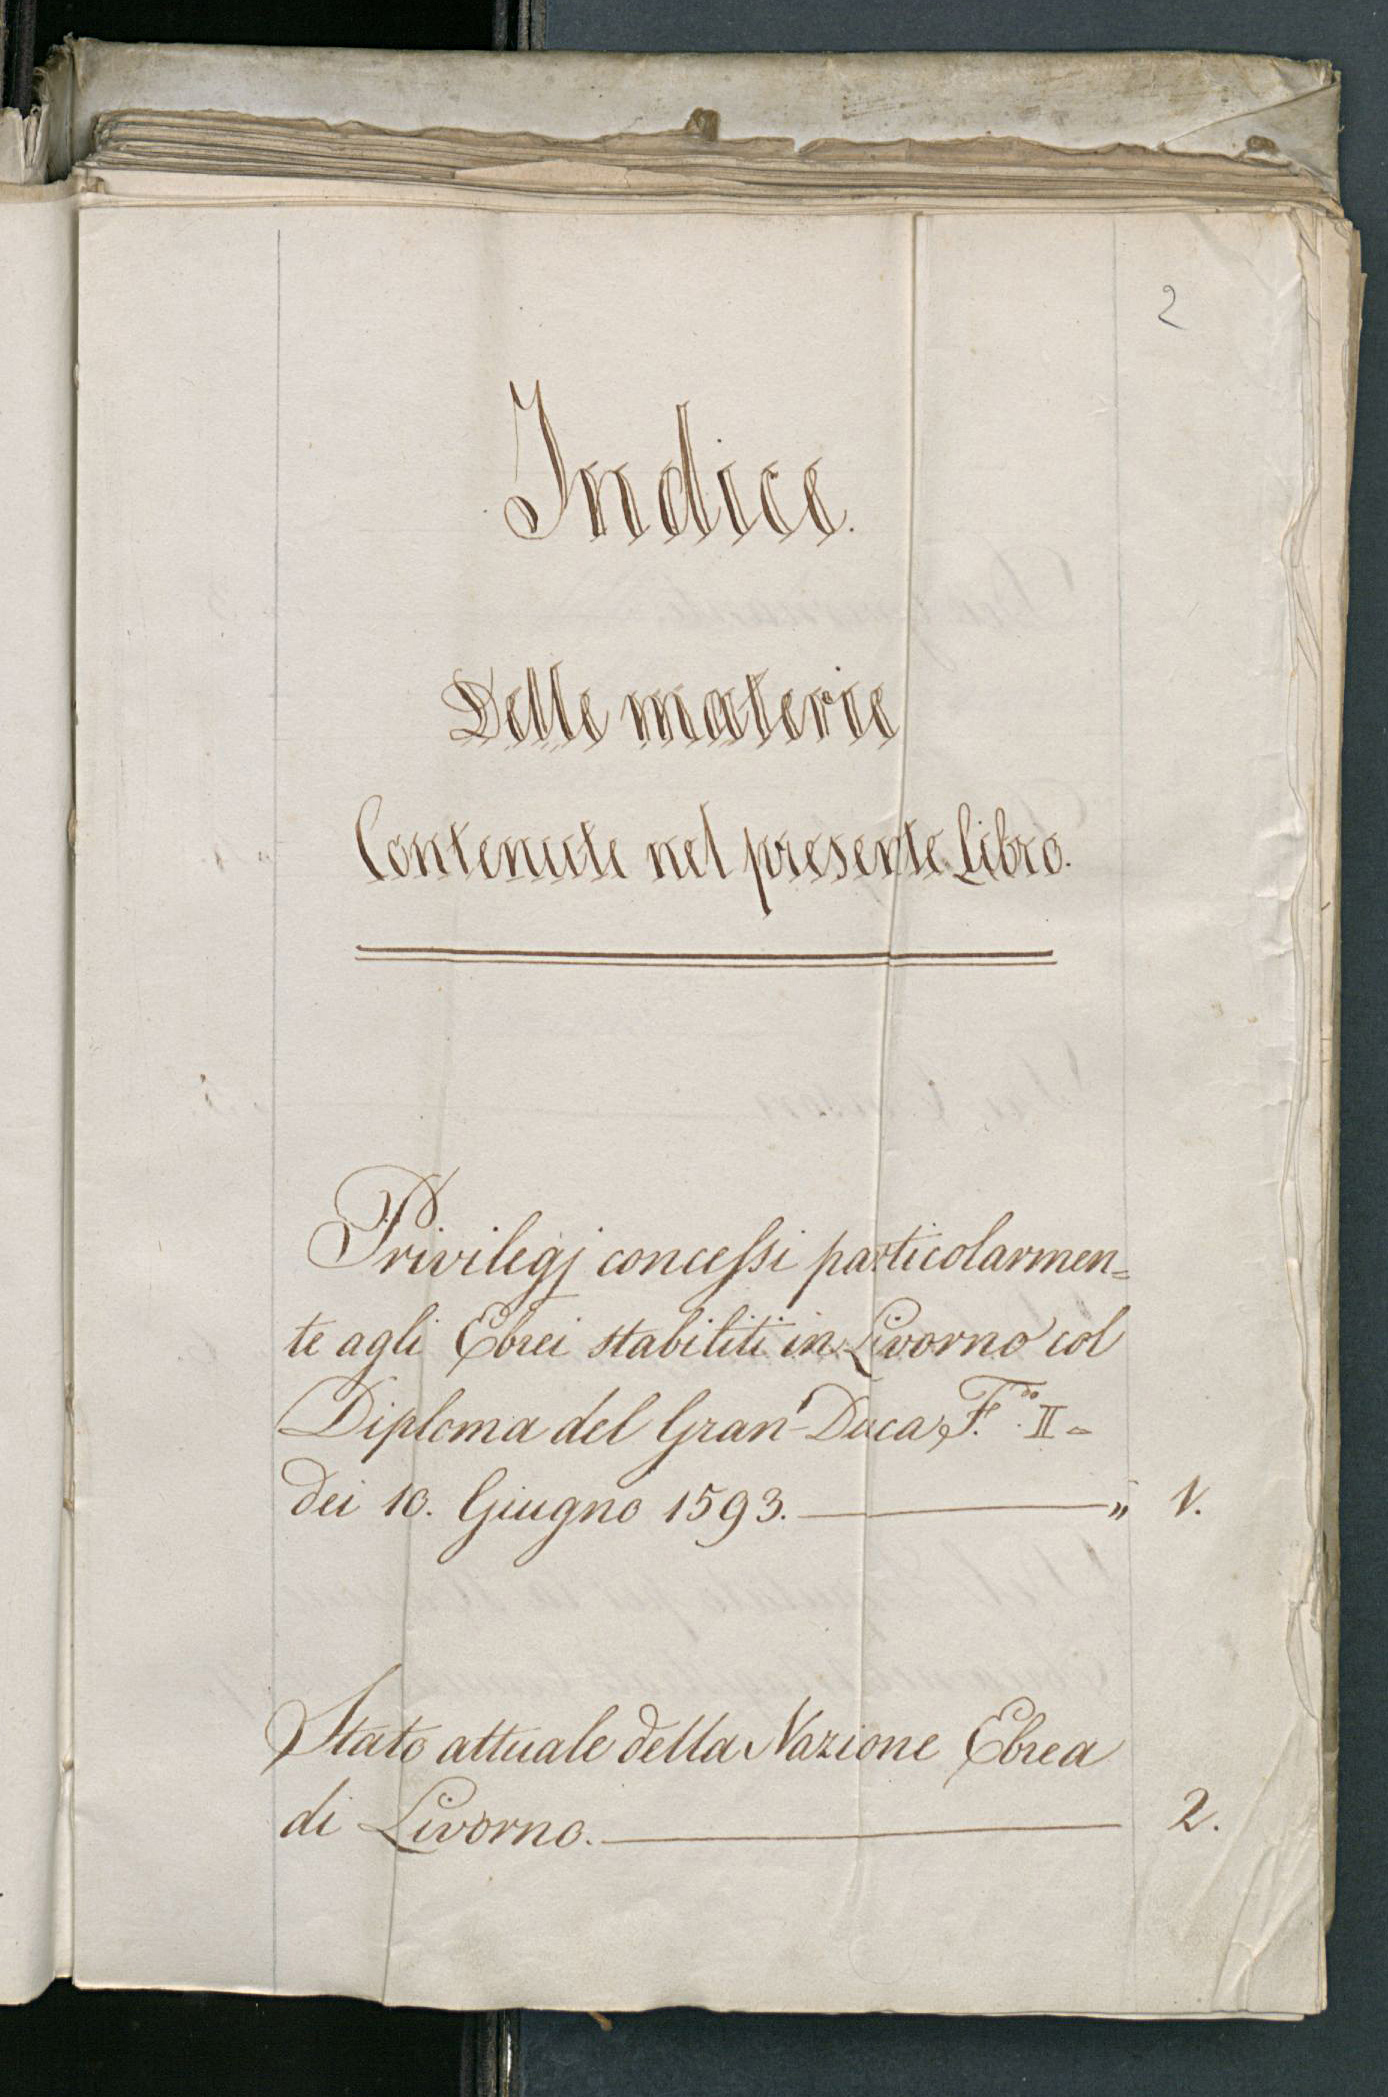 2
Indice.
Delle materie
Contenute nel presente Libro.
Privilegj concessi particolarmen=
te agli Ebrei stabiliti in Livorno col
Diploma del Gran-Duca F.do II=
dei 10. Giugno 1593. — „ 1.
Stato attuale della Nazione Ebrea
di Livorno. — 2.